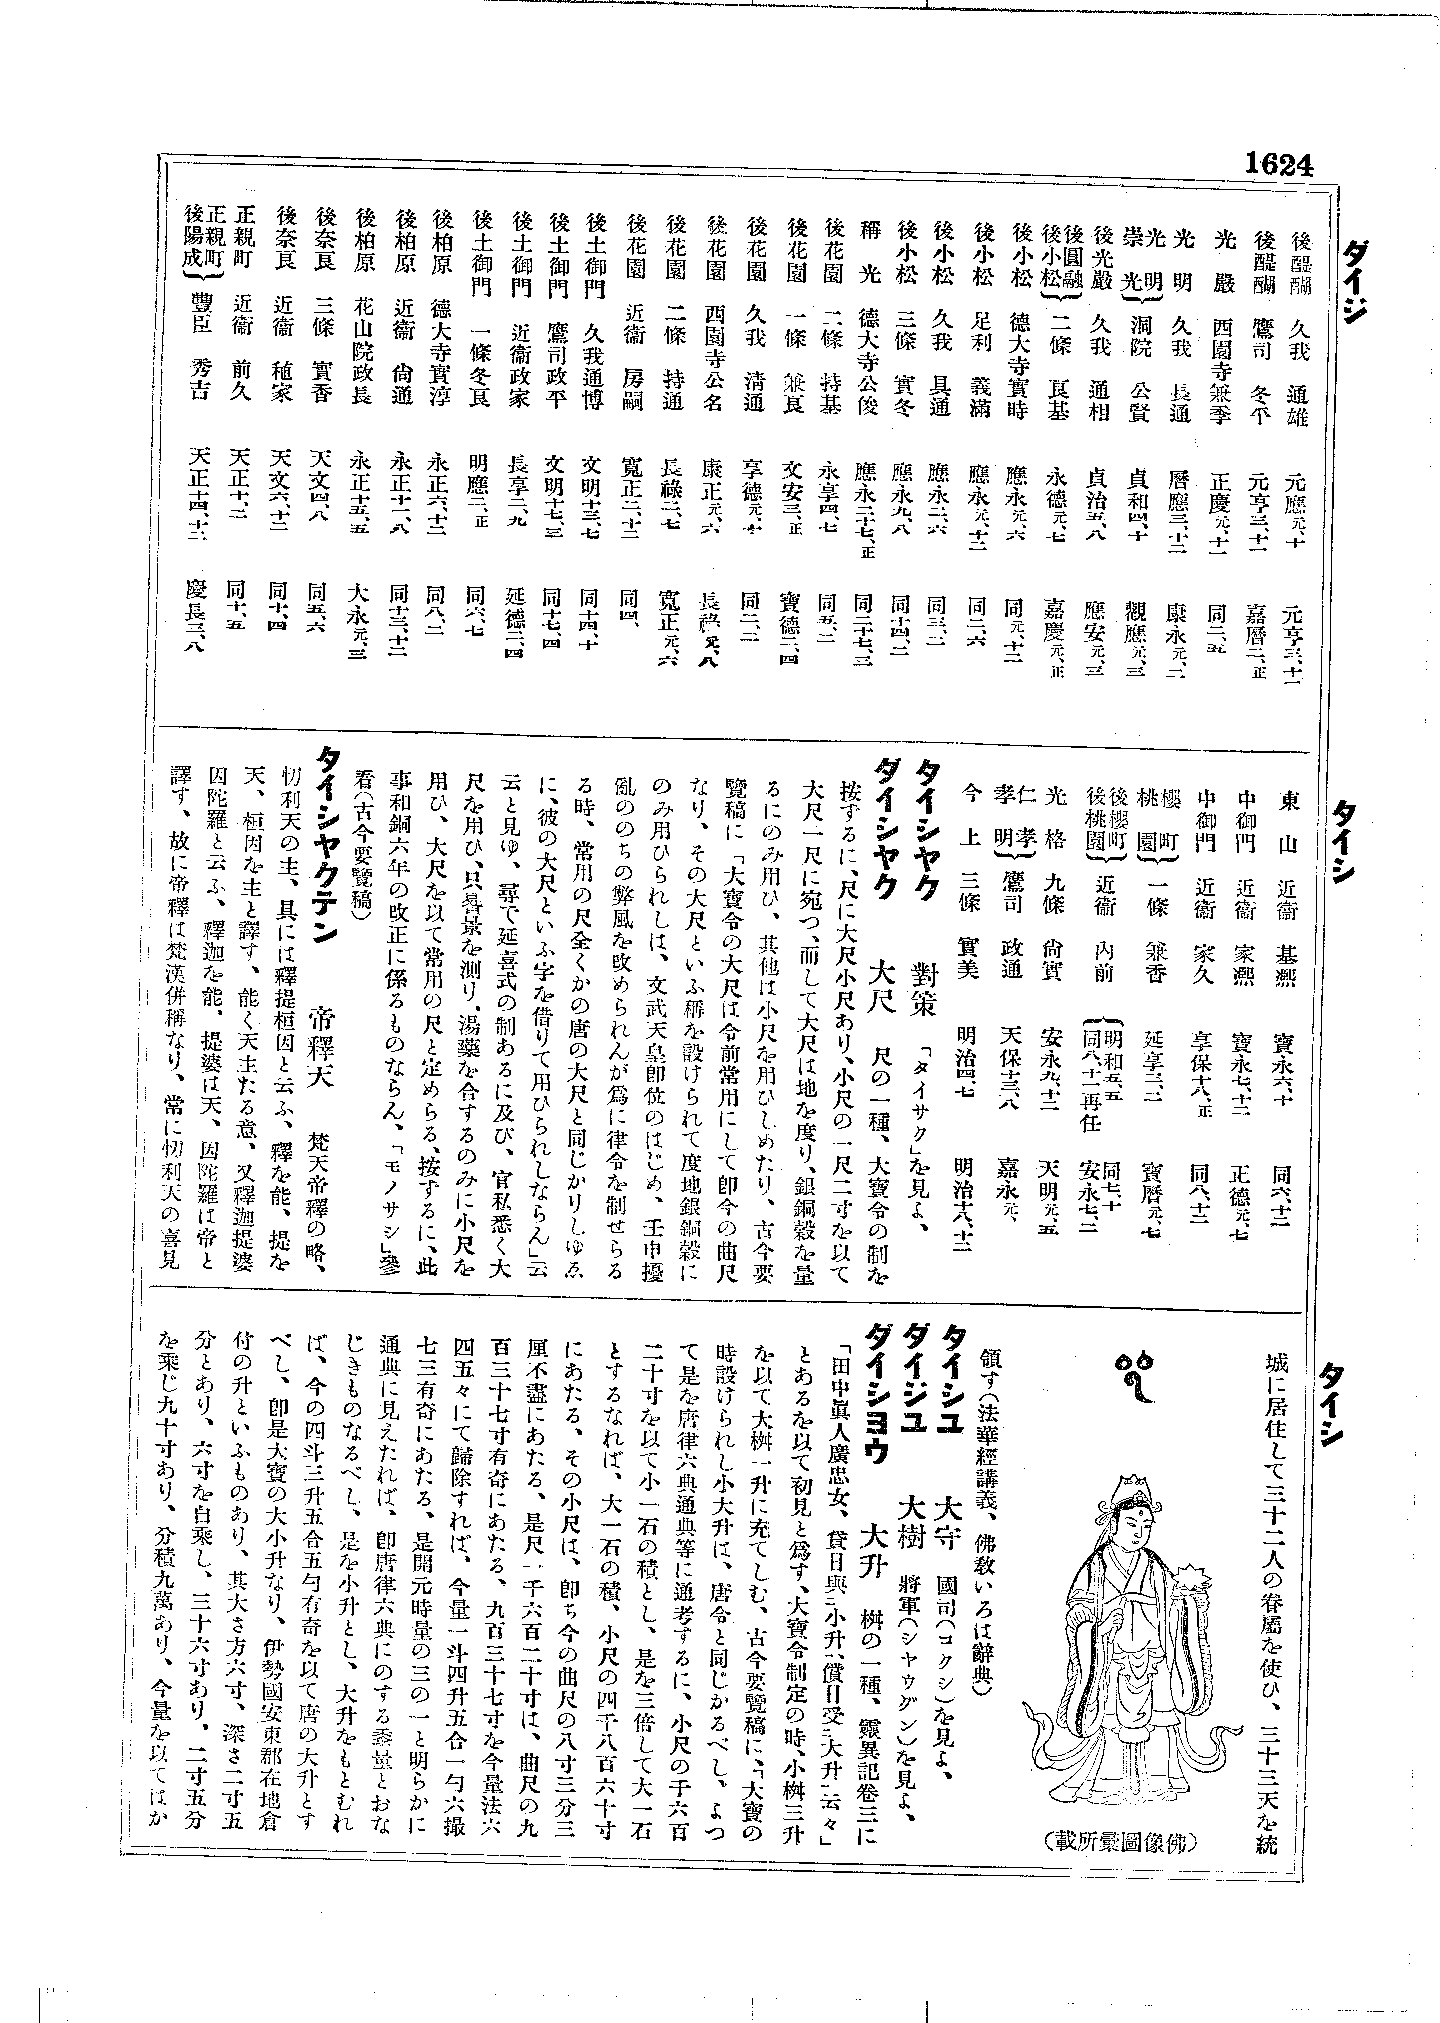 1624
ダイジ
後醍醐 久我 通雄 元應元、十 元亨三、十二
後醍醐 鷹司 冬平 元亨三、十二 嘉曆二、正
光嚴 西園寺兼季 正慶元、十一 同二、五
光明 久我 長通 曆應三、十二 康永元、二
光明 崇光 洞院 公賢 貞和四、十 觀應元、三
後光嚴 久我 通相 貞治五、八 應安元、三
後圓融 後小松 二條 良基 永德元、七 嘉慶元、正
後小松 德大寺實時 應永元、六 同元、十二
後小松 足利 義滿 應永元、十二 同二、六
後小松 久我 具通 應永二、六 同三、二
後小松 三條 實冬 應永九、八 同十四、二
稱光 德大寺公俊 應永二十七、正 同二十七、三
後花園 二條 持基 永享四、七 同五、二
後花園 一條 兼良 文安三、正 寶德二、四
後花園 久我 淸通 享德元、十 同二、二
後花園 西園寺公名 康正元、六 長祿元、八
後花園 二條 持通 長祿二、七 寬正元、六
後花園 近衞 房嗣 寬正二、十二 同四、
後土御門 久我通博 文明十三、七 同十四、十
後土御門 鷹司政平 文明十七、三 同十七、四
後土御門 近衞政家 長享二、九 延德二、四
後土御門 一條冬良 明應二、正 同六、七
後柏原 德大寺實淳 永正六、十二 同八、二
後柏原 近衞 尙通 永正十一、八 同十三、十二
後柏原 花山院政長 永正十五、五 大永元、三
後奈良 三條 實香 天文四、八 同五、六
後奈良 近衞 稙家 天文六、十二 同十、四
正親町 近衞 前久 天正十、二 同十、五
正親町 後陽成 豐臣 秀吉 天正十四、十二 慶長三、八
タイシ
東山 近衞 基熈 寶永六、十 同六、十二
中御門 近衞 家熈 寶永七、十二 正德元、七
中御門 近衞 家久 享保十八、正 同八、十二
櫻町 桃園 一條 兼香 延享三、二 寶曆元、七
後櫻町 後桃園 近衞 內前 明和五、五 同七、十 同八、十一再任 安永七、二
光格 九條 尙實 安永九、十二 天明元、五
仁孝 孝明 鷹司 政通 天保十三、八 嘉永元、
今上 三條 實美 明治四、七 明治十八、十二
タイシヤク 對策 「タイサク」を見よ、
ダイシヤク 大尺 尺の一種、大寶令の制を
按ずるに、尺に大尺小尺あり、小尺の一尺二寸を以て
大尺一尺に宛つ、而して大尺は地を度り、銀銅穀を量
るにのみ用ひ、其他は小尺を用ひしめたり、古今要
覽稿に「大寶令の大尺は令前常用にして卽今の曲尺
なり、その大尺といふ稱を設けられて度地銀銅穀に
のみ用ひられしは、文武天皇卽位のはじめ、壬申擾
亂ののちの弊風を改められんが爲に律令を制せらる
る時、常用の尺全くかの唐の大尺と同じかりしゆゑ
に、彼の大尺といふ字を借りて用ひられしならん」云
云と見ゆ、尋で延喜式の制あるに及び、官私悉く大
尺を用ひ、只晷景を測り、湯藥を合するのみに小尺を
用ひ、大尺を以て常用の尺と定めらる、按ずるに、此
事和銅六年の改正に係るものならん、「モノサシ」參
看(古今要覽稿)
タイシヤクテン 帝釋天 梵天帝釋の略、
忉利天の主、具には釋提桓因と云ふ、釋を能、提を
天、桓因を主と譯す、能く天主たる意、又釋迦提婆
因陀羅と云ふ、釋迦を能、提婆は天、因陀羅は帝と
譯す、故に帝釋は梵漢併稱なり、常に忉利天の喜見
タイシ
城に居住して三十二人の眷屬を使ひ、三十三天を統
(佛像圖彙所載)
領す(法華經講義、佛敎いろは辭典)
タイシユ 大守 國司(コクシ)を見よ、
ダイジユ 大樹 將軍(シヤウグン)を見よ、
ダイシヨウ 大升 桝の一種、靈異記卷三に
「田中眞人廣忠女、貸日與ニ小升一、償日受ニ大升一云々」
とあるを以て初見と爲す、大寶令制定の時、小桝三升
を以て大桝一升に充てしむ、古今要覽稿に、「大寶の
時設けられし小大升は、唐令と同じかるべし、よつ
て是を唐律六典通典等に通考するに、小尺の千六百
二十寸を以て小一石の積とし、是を三倍して大一石
とするなれば、大一石の積、小尺の四千八百六十寸
にあたる、その小尺は、卽ち今の曲尺の八寸三分三
厘不盡にあたる、是尺一千六百二十寸は、曲尺の九
百三十七寸有奇にあたる、九百三十七寸を今量法六
四五々にて歸除すれば、今量一斗四升五合一勺六撮
七三有奇にあたる、是開元時量の三の一と明らかに
通典に見えたれば、卽唐律六典にのする黍量とおな
じきものなるべし、是を小升とし、大升をもとむれ
ば、今の四斗三升五合五勺有奇を以て唐の大升とす
べし、卽是大寶の大小升なり、伊勢國安東郡在地倉
付の升といふものあり、其大さ方六寸、深さ二寸五
分とあり、六寸を自乘し、三十六寸あり、二寸五分
を乘じ九十寸あり、分積九萬あり、今量を以てはか